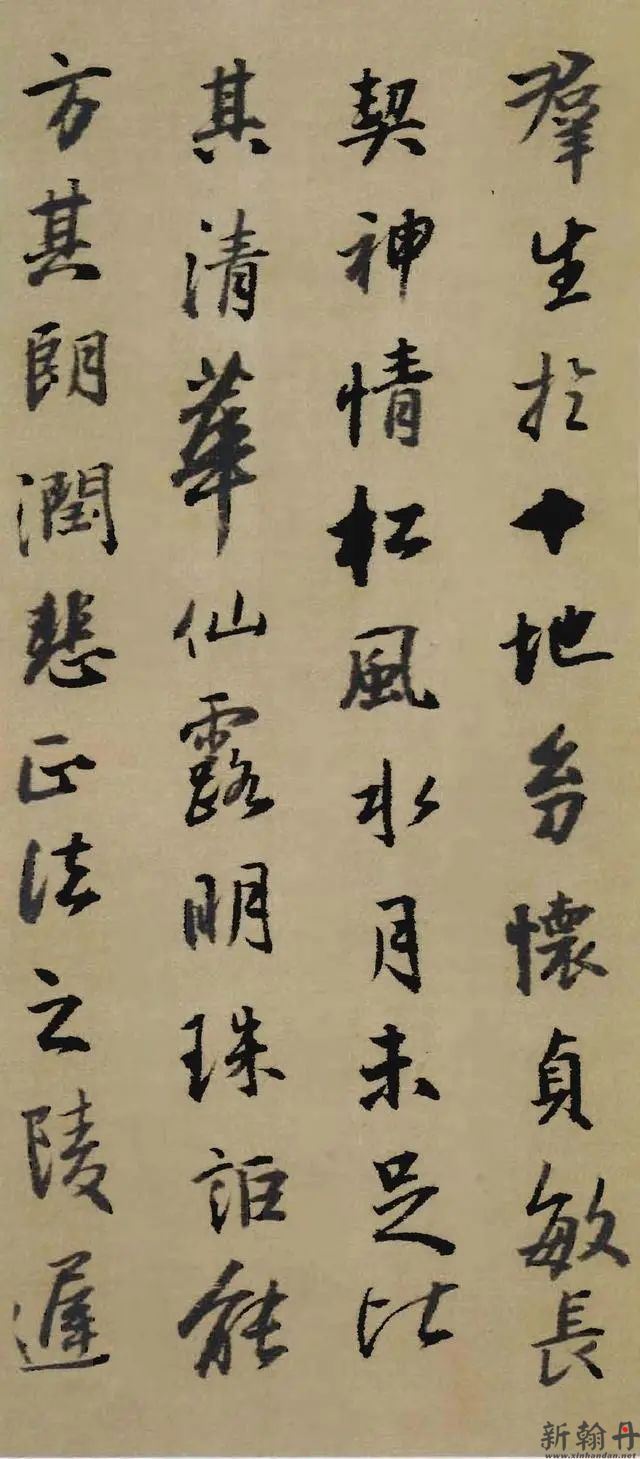 羣生於十地幼懷貞敏長
契神情松風水月未足比
其清華仙露明珠詎能
方其朗潤悲正法之陵遲
新翰丹
www.xinhandan.net